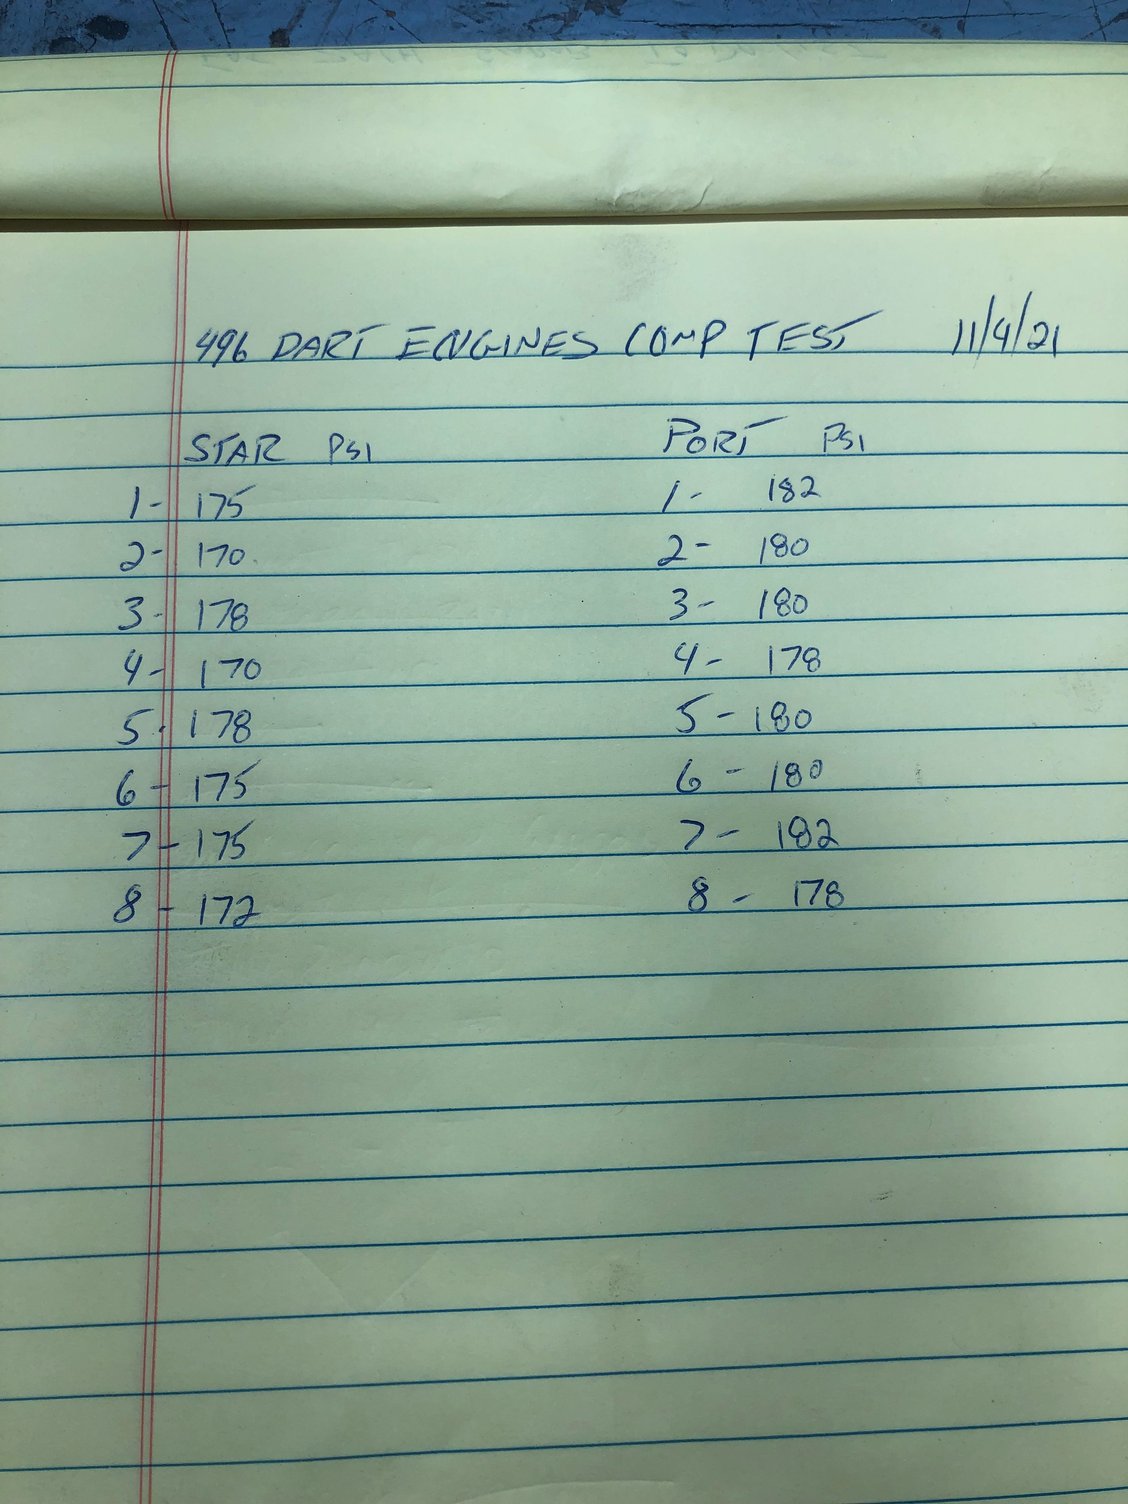 496 DART ENGINES COMP TEST 11/4/21
STAR PSI PORT PSI
1- 175 1- 182
2- 170 2- 180
3- 178 3- 180
4- 170 4- 178
5- 178 5- 180
6- 175 6- 180
7- 175 7- 182
8- 172 8- 178